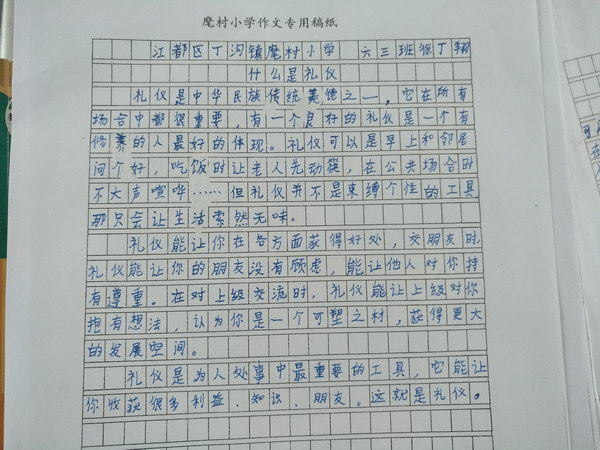 麾村小学作文专用稿纸
江都区丁沟镇麾村小学 六三班徐丁翔
什么是礼仪
礼仪是中华民族传统美德之一,它在所有
场合中都很重要,有一个良好的礼仪是一个有
修养的人最好的体现。礼仪可以是早上和邻居
问个好,吃饭时让老人先动筷,在公共场合时
不大声喧哗……但礼仪并不是束缚个性的工具
那只会让生活索然无味。
礼仪能让你在各方面获得好处,交朋友时
礼仪能让你的朋友没有顾虑,能让他人对你持
有尊重。在对上级交流时,礼仪能让上级对你
抱有想法,认为你是一个可塑之材,获得更大
的发展空间。
礼仪是为人处事中最重要的工具,它能让
你收获很多利益、知识、朋友。这就是礼仪。